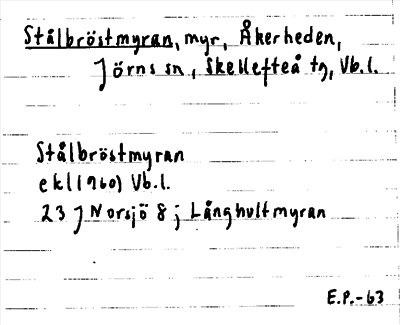 Stålbröstmyran, myr, Åkerheden,
Jörns sn, Skellefteå tg, Vb.l.
Stålbröstmyran
ekl(1960) Vb.l.
23 J Norsjö 8 j Långhultmyran
E.P.-63